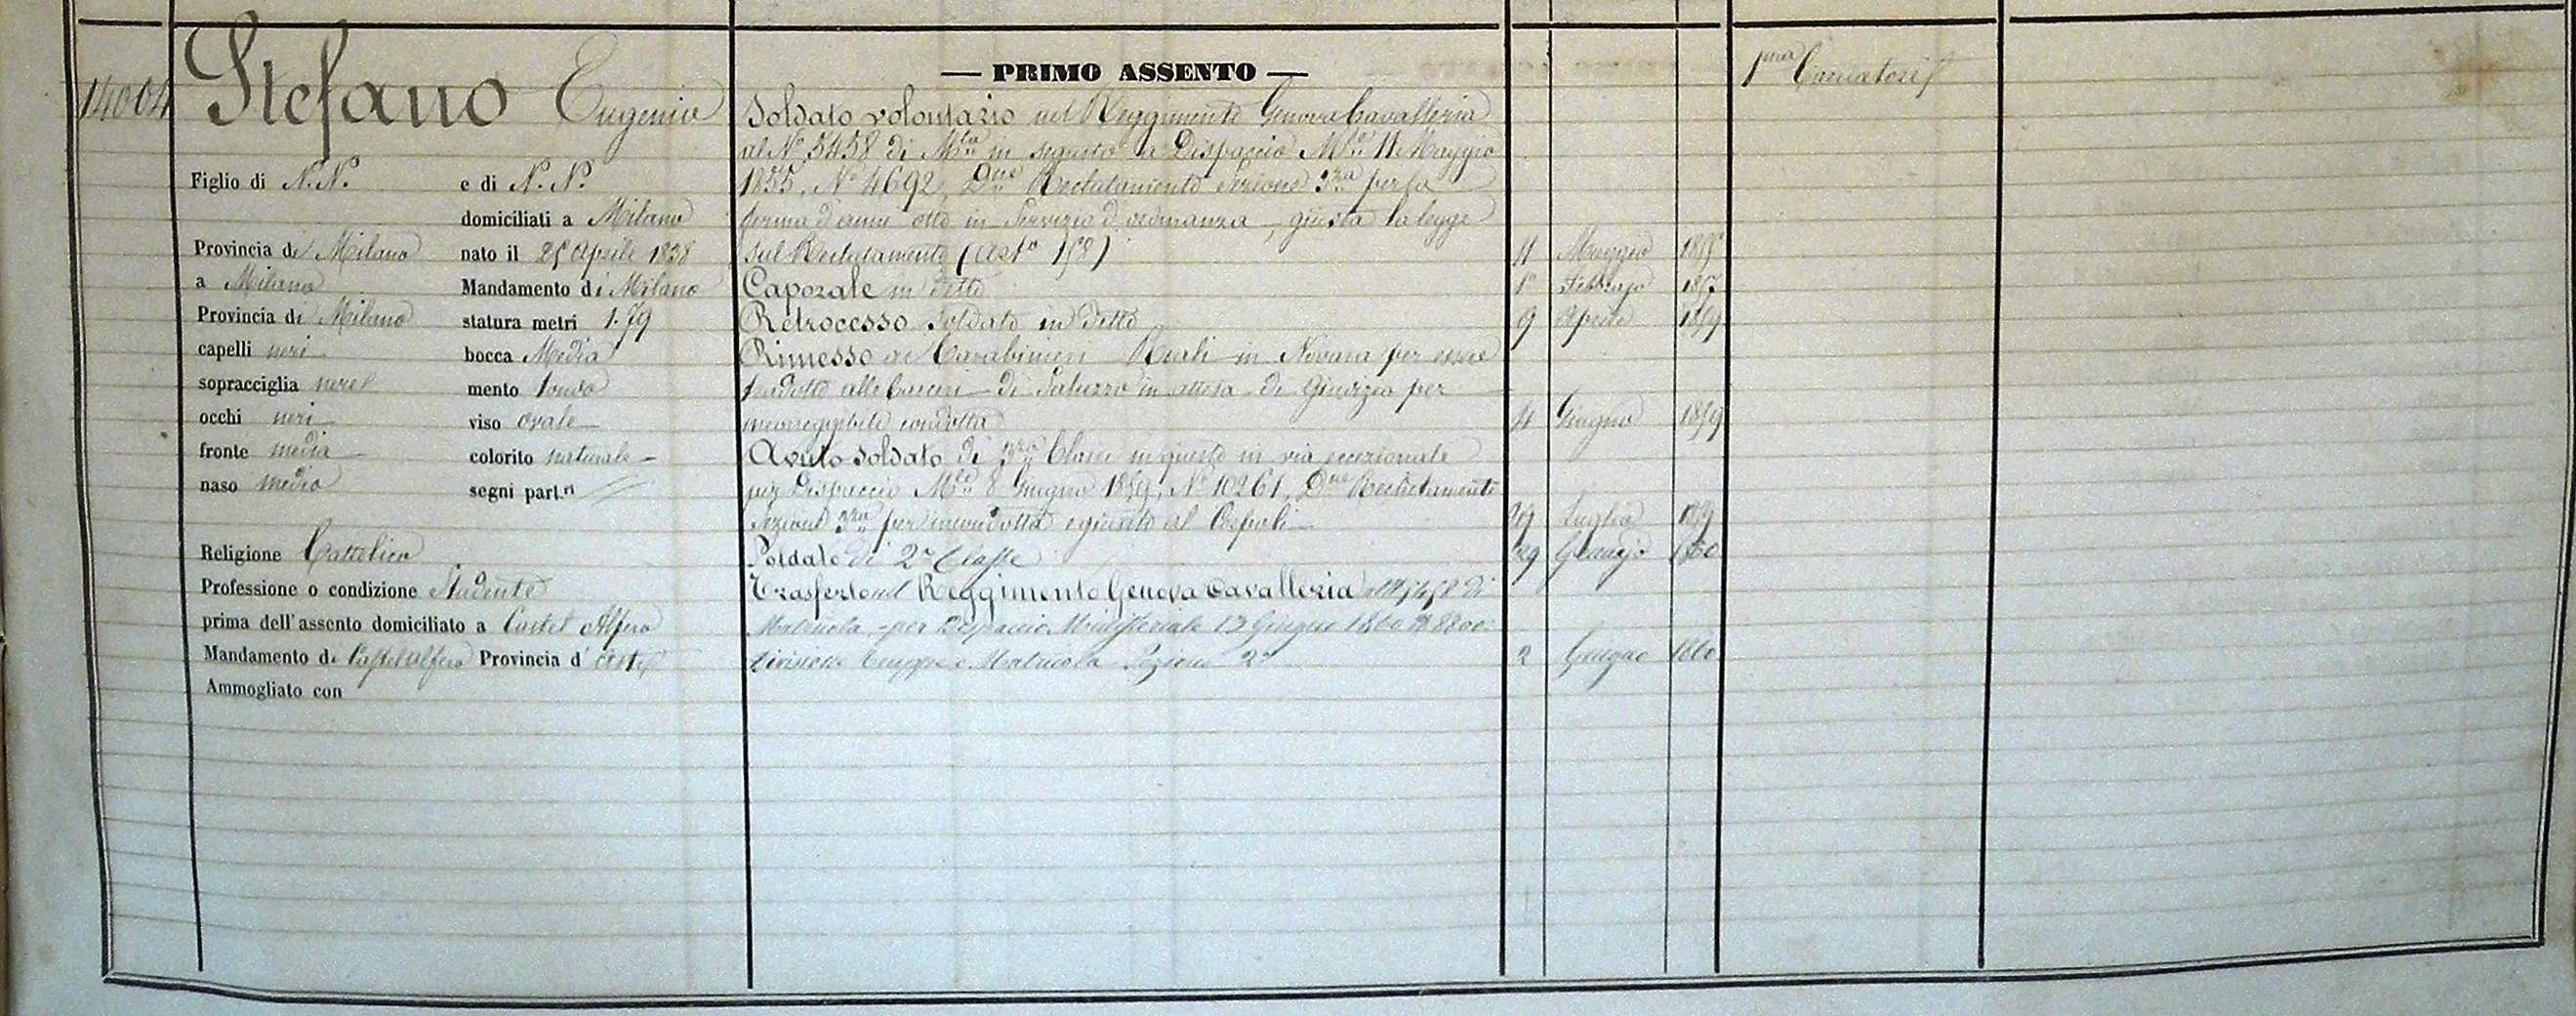 14004 Stefano Eugenio
Figlio di N. N. e di N. N.
domiciliati a Milano
Provincia di Milano nato il 25 Aprile 1838
a Milano Mandamento di Milano
Provincia di Milano statura metri 1.79
capelli neri bocca Media
sopracciglia nere mento tondo
occhi neri viso ovale
fronte media colorito naturale
naso medio segni part.ri
Religione Cattolica
Professione o condizione Studente
prima dell'assento domiciliato a Castel Alfero
Mandamento di Castelalfero Provincia d'Asti
Ammogliato con
PRIMO ASSENTO
Soldato volontario nel Reggimento Genova Cavalleria
al No 5458 di Mla in seguito a Dispaccio Mle 11 Maggio
1855, No 4692, Dne Reclutamento Sezione 3za per la
ferma d'anni otto in Servizio d'ordinanza, giusta la legge
sul Reclutamento (Arto 158) 11 Maggio 1855
Caporale in detto 1o Febbrajo 1857
Retrocesso Soldato in detto 9 Aprile 1859
Rimesso ai Carabinieri Reali in Novara per essere
tradotto alle Carceri di Saluzzo in attesa di Giudizio per
incorreggibile condotta 4 Giugno 1859
Avuto soldato di Classe in questo in via eccezionale
per Dispaccio Mle 8 Giugno 1859, No 10261, Dne Reclutamento
Sezione 3za per incondotta e giunto al Corpo li 29 Luglio 1859
Soldato di 2a Classe 29 Gennajo 1860
Trasferto nel Reggimento Genova Cavalleria al No 5458 di
Matricola per Dispaccio Ministeriale 13 Giugno 1860 No 8800
Divisione Truppa e Matricola Sezione 2a 2 Giugno 1860
1ma Cacciatori